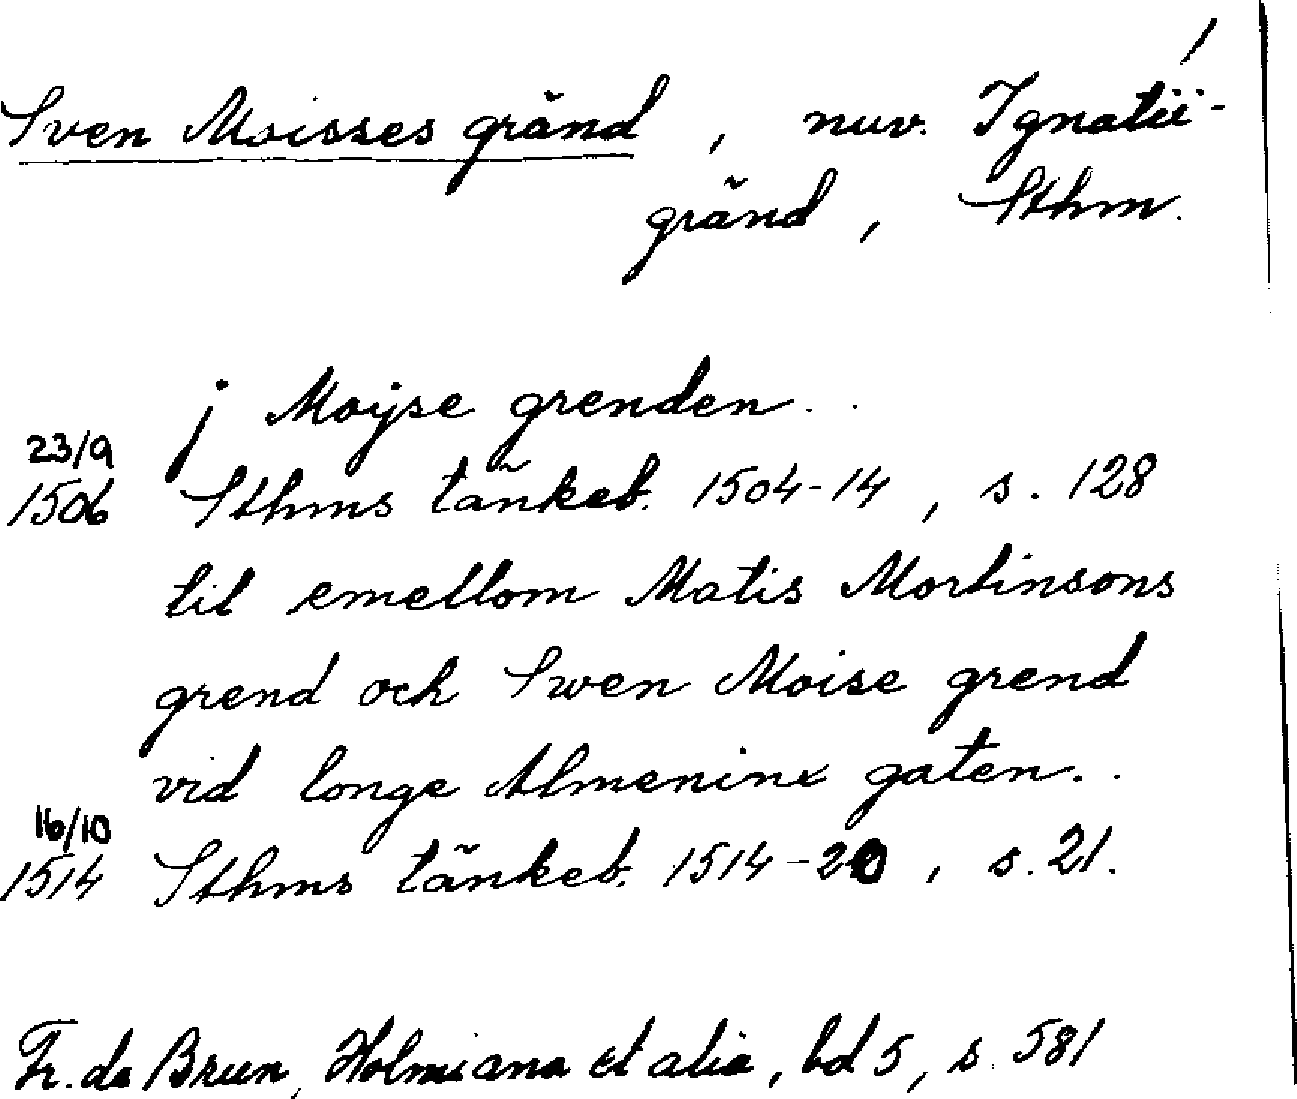 /
Sven Moisses gränd, nuv. Ignatii-
gränd, Sthm.
j Moijse grenden..
23/9
1506 Sthms tänkeb. 1504-14, s. 128
til emellom Matis Mortinsons
grend och Swen Moise grend
vid longe Almeninx gaten..
16/10
1514 Sthms tänkeb. 1514-20, s. 21.
Fr. de Brun, Holmiana et alia, bd 5, s. 581